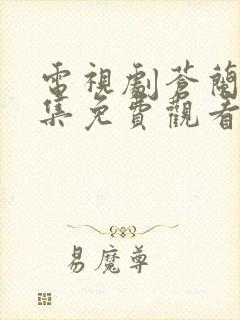 電視劇蒼蘭
集免費觀看
易魔尊